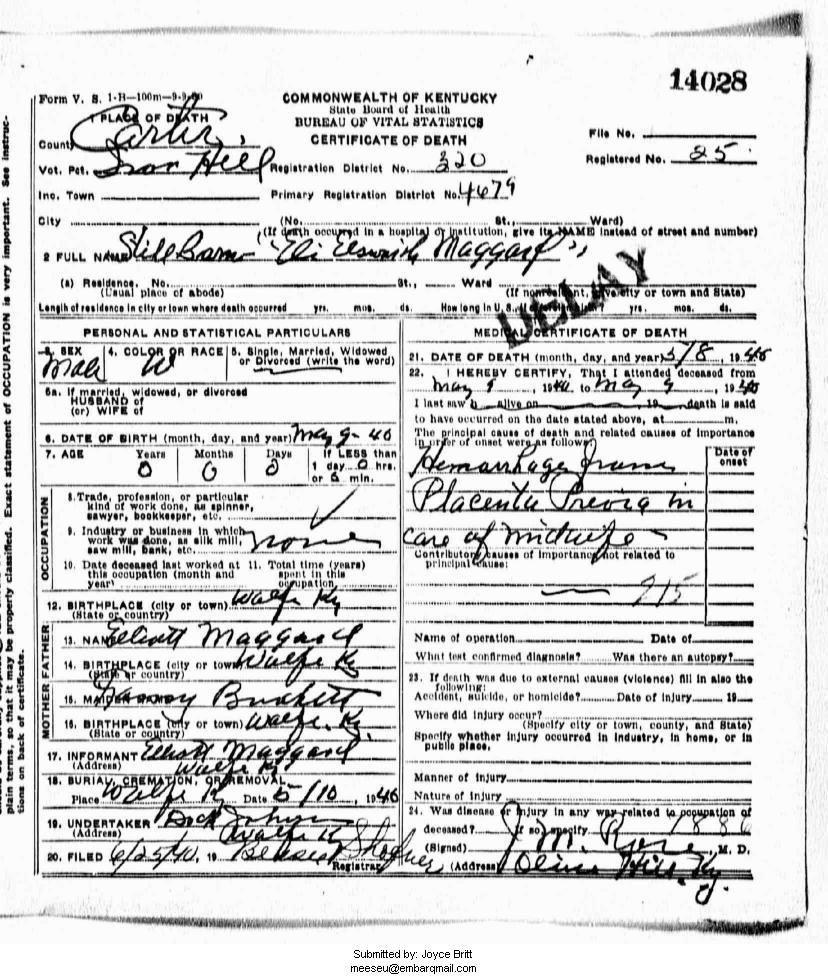 14028
Form V. S. 1-B—100m—9-9-
COMMONWEALTH OF KENTUCKY
State Board of Health
BUREAU OF VITAL STATISTICS
CERTIFICATE OF DEATH
1 PLACE OF DEATH
County Carter,
File No.
Vot. Pct. Iron Hill Registration District No. 320 Registered No. 25
Inc. Town Primary Registration District No. 4679
City (No. St., Ward)
(If death occurred in a hospital or institution, give its NAME instead of street and number)
2 FULL NAME Still Born "Eli Maggard"
DELAY
(a) Residence. No. St., Ward
(Usual place of abode) (If nonresident, give city or town and State)
Length of residence in city or town where death occurred yrs. mos. ds. How long in U. S., if of foreign birth? yrs. mos. ds.
PERSONAL AND STATISTICAL PARTICULARS
3. SEX 4. COLOR OR RACE 5. Single, Married, Widowed
or Divorced (write the word)
Male W
5a. If married, widowed, or divorced
HUSBAND of
(or) WIFE of
6. DATE OF BIRTH (month, day, and year) May 9-40
7. AGE Years Months Days If LESS than
1 day 0 hrs.
0 0 0 or min.
OCCUPATION
8. Trade, profession, or particular
kind of work done, as spinner,
sawyer, bookkeeper, etc.
9. Industry or business in which
work was done, as silk mill,
saw mill, bank, etc. none
10. Date deceased last worked at 11. Total time (years)
this occupation (month and spent in this
year) occupation
12. BIRTHPLACE (city or town) Wolfe Ky
(State or country)
FATHER
13. NAME Elliott Maggard
14. BIRTHPLACE (city or town) Wolfe Ky
(State or country)
MOTHER
15. MAIDEN NAME
16. BIRTHPLACE (city or town) Wolfe. Ky.
(State or country)
17. INFORMANT Elliott Maggard
(Address) Wolfe Ky
18. BURIAL, CREMATION, OR REMOVAL
Place Wolfe Ky Date 5/10, 1940
19. UNDERTAKER
(Address) Wolfe K
20. FILED 6/25/40, 19
Registrar
MEDICAL CERTIFICATE OF DEATH
21. DATE OF DEATH (month, day, and year) 5/8, 1940
22. I HEREBY CERTIFY, That I attended deceased from
May 9, 1940 to May 9, 1940
I last saw h alive on 19 death is said
to have occurred on the date stated above, at m.
The principal cause of death and related causes of importance
in order of onset were as follows:
Date of
onset
Hemorrhage from
Placenta Previa in
care of midwife
Contributory causes of importance not related to
principal cause:
215
Name of operation Date of
What test confirmed diagnosis? Was there an autopsy?
23. If death was due to external causes (violence) fill in also the
following:
Accident, suicide, or homicide? Date of injury 19
Where did injury occur?
(Specify city or town, county, and State)
Specify whether injury occurred in industry, in home, or in
public place.
Manner of injury
Nature of injury
24. Was disease or injury in any way related to occupation of
deceased? If so, specify
(Signed) M. D.
(Address) Olive Hill. Ky.
plain terms, so that it may be properly classified. Exact statement of OCCUPATION is very important. See instruc-
tions on back of certificate.
Submitted by: Joyce Britt
meeseu@embarqmail.com